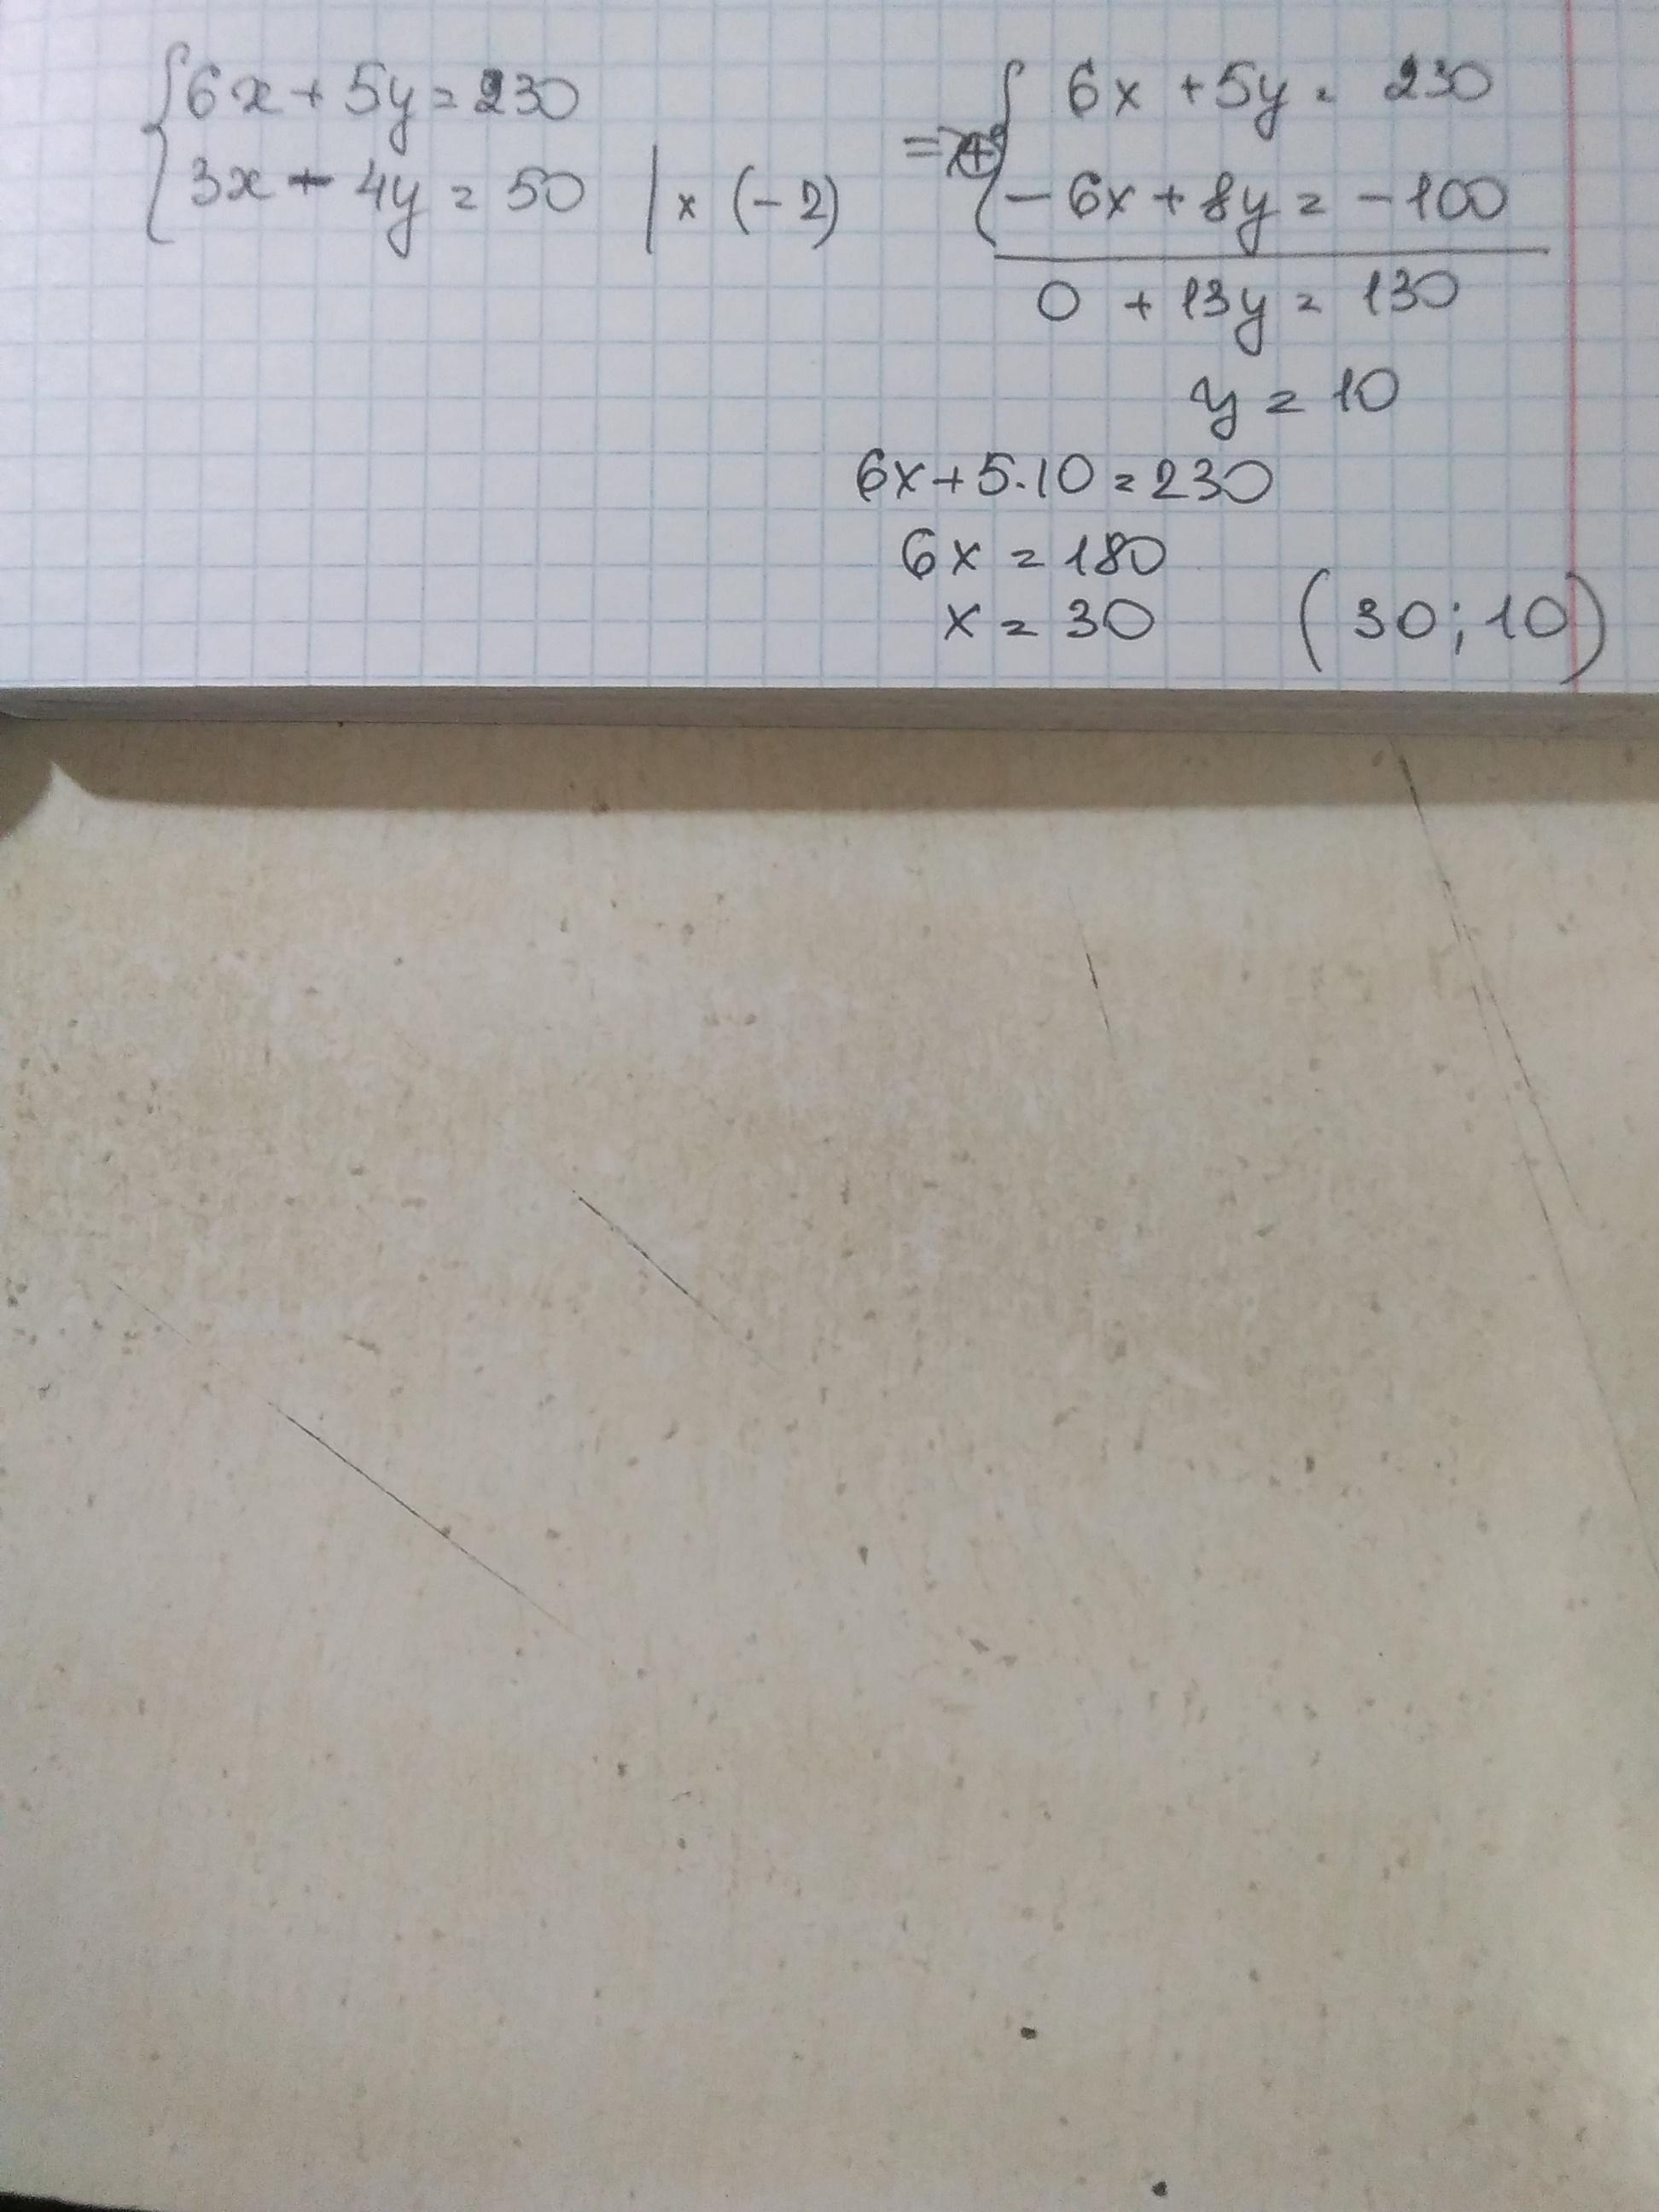 6x + 5y = 230
3x - 4y = 50 | x (-2)
=>
6x + 5y = 230
-6x + 8y = -100
0 + 13y = 130
y = 10
6x + 5·10 = 230
6x = 180
x = 30 (30; 10)